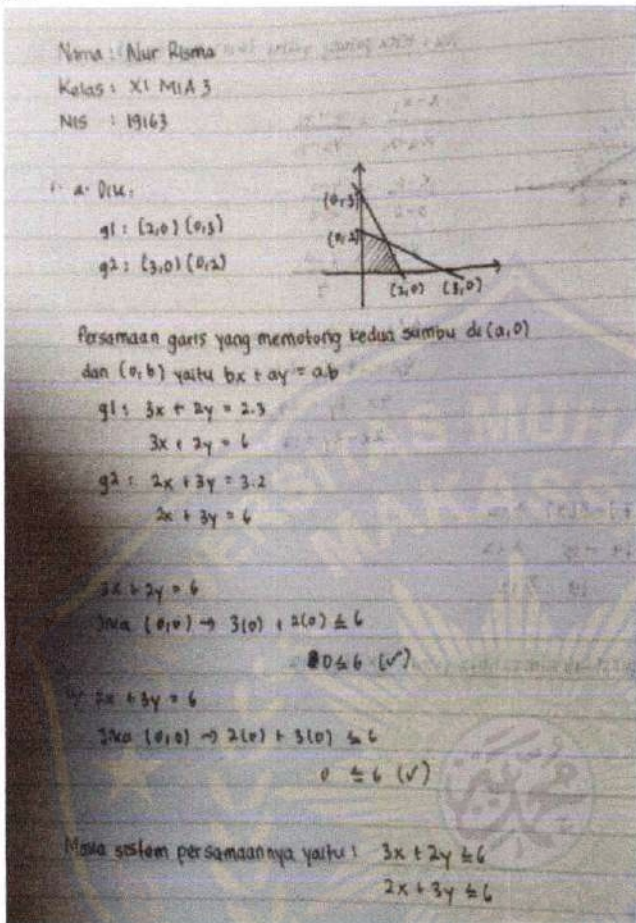 Nama : Nur Risma
Kelas : XI MIA 3
NIS : 19163
1. a. Dik :
g1 : (2,0) (0,3)
g2 : (3,0) (0,2)
(0,3)
(0,2)
(2,0) (3,0)
Persamaan garis yang memotong kedua sumbu di (a,0)
dan (0,b) yaitu bx + ay = a.b
g1 : 3x + 2y = 2.3
3x + 2y = 6
g2 : 2x + 3y = 3.2
2x + 3y = 6
3x + 2y = 6
Jika (0,0) → 3(0) + 2(0) ≤ 6
0 ≤ 6 (✓)
2x + 3y = 6
Jika (0,0) → 2(0) + 3(0) ≤ 6
0 ≤ 6 (✓)
Maka sistem persamaannya yaitu : 3x + 2y ≤ 6
2x + 3y ≤ 6